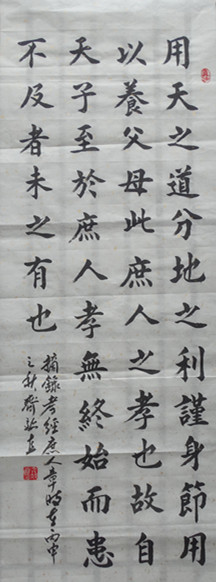 用天之道分地之利謹身節用
以養父母此庶人之孝也故自
天子至於庶人孝無終始而患
不及者未之有也
摘錄孝經庶人章時在丙申
之秋